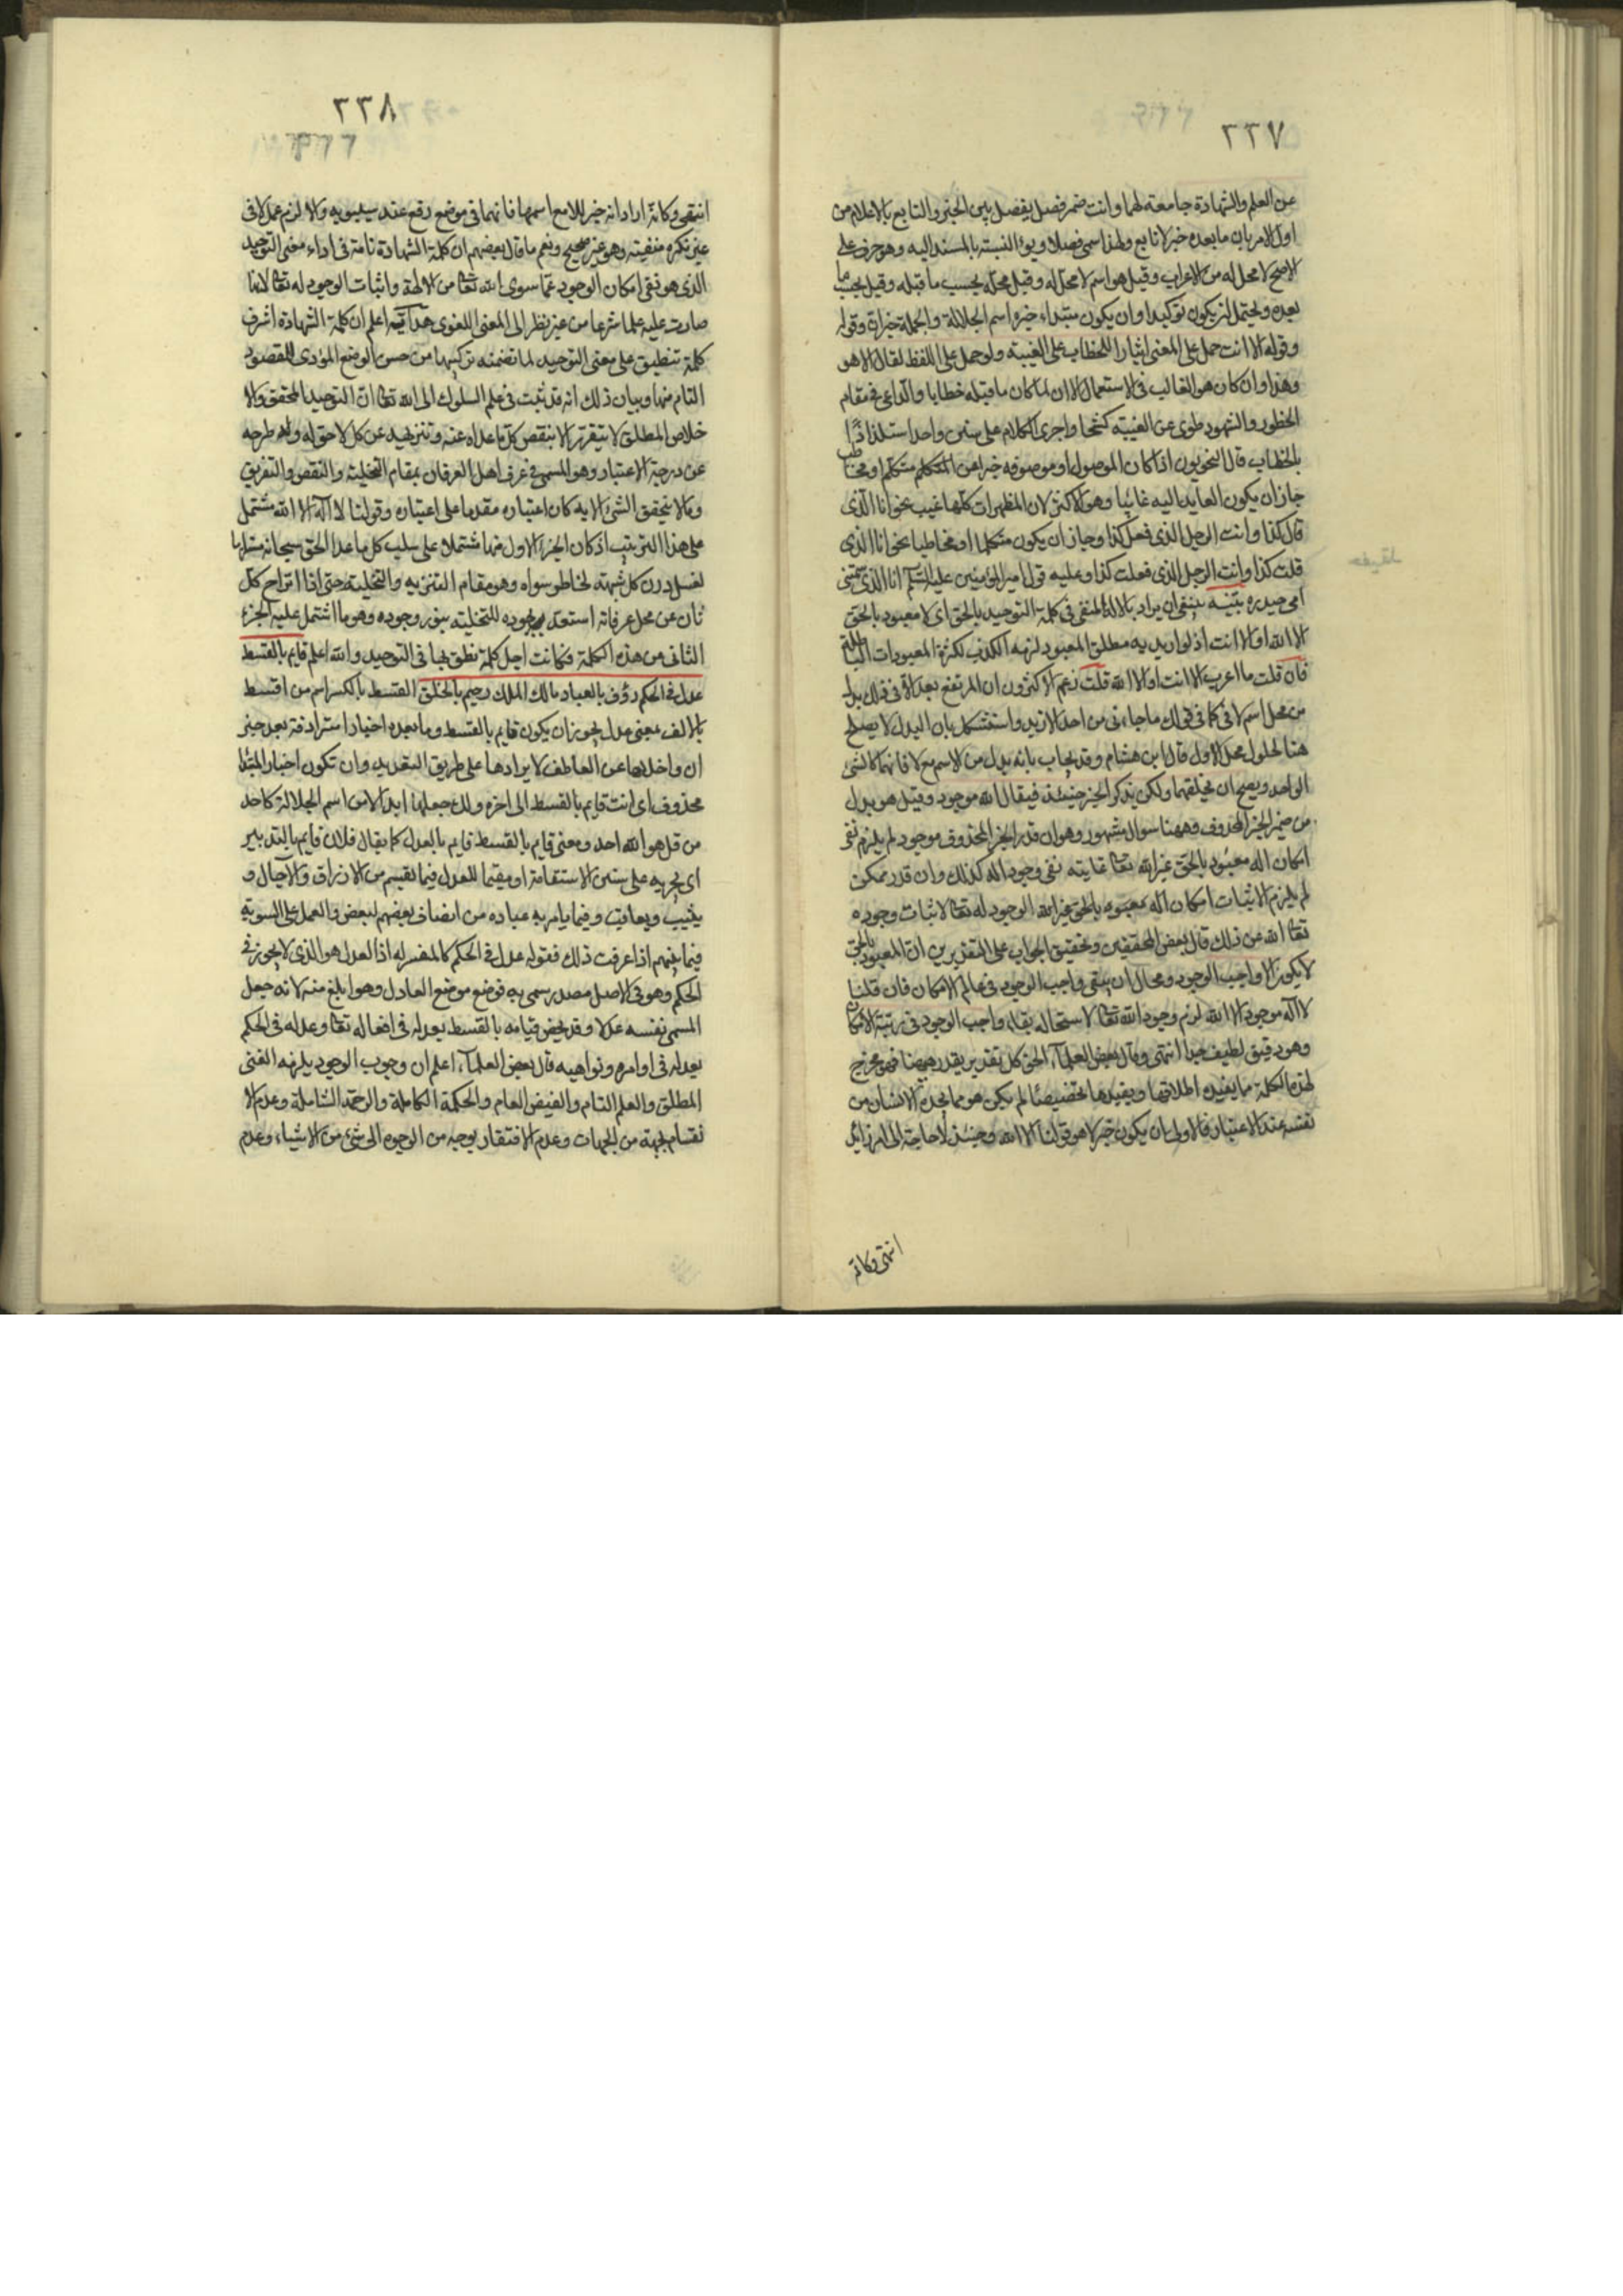 ٢٣٧
عن العلم والشهادة جامعة لهما وانت ضمير فصل يفصل بين الخبر والتابع بالاعلام من
اول الامر بان ما بعده خبر لا تابع ولهذا سمى فصلا ويؤ النسبته بالمسند اليه وهو حرف على
الاصح لا محل له من الاعراب وقيل هو اسم لا محل له وقيل محله بحسب ما قبله وقيل بحسب ما
بعده ويحتمل ان يكون توكيدا وان يكون مبتداء خبره اسم الجلالة والجملة خبران وقوله
وقوله الا انت حمل على المعنى ايثارا للخطاب على الغيبته ولو حمل على اللفظ لقال الا هو
وهذا وان كان هو الغالب فى الاستعمال الا ان لما كان ما قبله خطابا والداعى فى مقام
الحظور والشهود طوى عن الغيبته كشحا واجرى الكلام على سنن واحد استلذاذا
بالخطاب قال النحويون اذا كان الموصول او موصوفه خبرا عن المتكلم متكلم او مخاطب
جاز ان يكون العايد اليه غائبا وهو الاكثر لان المظهرات كلها غيب نحو انا الذى
قال كذا وانت الرجل الذى فعل كذا وجاز ان يكون متكلما او مخاطبا نحو انا الذى
قلت كذا وانت الرجل الذى فعلت كذا وعليه قول امير المؤمنين عليه السلام انا الذى سمتنى
امى حيدره تنبيه ينبغى ان يراد بالاله المنفى فى كلمة التوحيد بالحق اى لا معبود بالحق
الا الله او الا انت اذ لو اريد به مطلق المعبود لزمه الكذب لكثرة المعبودات الباطلة
فان قلت ما اعرب الا انت او الا الله قلت زعم الاكثرون ان المرتفع بعد الا فى ذلك بدل
من محل اسم لا فى كما فى قولك ما جاءنى من احد الا زيد واستشكل بان البدل لا يصلح
هنا لحلول محل الاول قال ابن هشام وقد يجاب بانه بدل من الاسم مع لا فانهما كالشئ
الواحد ويصح ان يخلفهما ولكن يذكر الخبر حينئذ فيقال الله موجود وقيل هو بدل
من ضمير الخبر المحذوف وههنا سوال مشهور وهو ان قدر الخبر المحذوف موجود لم يلزم نفى
امكان اله معبود بالحق غير الله تعا غايته نفى وجود اله كذلك وان قدر ممكن
لم يلزم الاثبات امكان اله معبود بالحق غير الله الوجود له تعا لا اثبات وجوده
تعا الله عن ذلك قال بعض المحققين وتحقيق الجواب على التقديرين ان المعبود بالحق
لا يكون الا واجب الوجود ومحال ان يبقى واجب الوجود فى عالم الامكان فان قلنا
لا اله موجود الا الله لزم وجود الله تعا لاستحاله بقاء واجب الوجود فى رتبة الامكان
وهو دقيق لطيف جدا انتهى وقال بعض العلماء الحق كل تقدير يقدر ههنا فهو مخرج
لهذه الكلمة ما يفيده اطلاقها ويفيدها تخصيصًا لم يكن هو مما يجده الانسان من
نفسه عند الاعتبار فالاولى ان يكون خبر لا هو قولنا الا الله وحينئذ لا حاجة الى امر زائد
انتهى وكانه
٢٣٨
انتهى وكانه اراد انه خبر للا مع اسمها فانهما فى موضع رفع عند سيبويه والا لزم عمل لا فى
غير نكره منفيته وهو غير صحيح ونعم ما قال بعضهم ان كلمة الشهادة تامة فى اداء معنى التوحيد
الذى هو نفى امكان الوجود عما سوى الله تعا من الالهة واثبات الوجود له تعا لانها
صارت عليه علما شرعا من غير نظر الى المعنى اللغوى اعلم ان كلمة الشهادة اشرف
كلمة تنطبق على معنى التوحيد لما تضمنه تركيبها من حسن الوضع المؤدى للمقصود
التام منها وبيان ذلك انه قد ثبت فى علم السلوك الى الله تعا ان التوحيد المحقق والا
خلاص المطلق لا يتقرر الا بنقص كل ما عداه عنه وتنزيهه عن كل لاحق له وطرحه
عن درجة الاعتبار وهو المسمى فى عرف اهل العرفان بمقام التخلية والنقص والتفريق
وما لا يتحقق الشئ الا به كان اعتباره مقدما على اعتباره وقولنا لا اله الا الله مشتمل
على هذا الترتيب اذ كان الجزء الاول منها مشتملا على سلب كل ما عدا الحق سبحانه مستلزما
لغسل درن كل شبهته لخاطر سواه وهو مقام التنزيه والتخلية حتى اذا انزاح كل
ثان عن محل عرفانه استعد بجوده للتحلية بنور وجوده وهو ما اشتمل عليه الجزء
الثانى من هذه الكلمة فكانت اجل كلمة نطق بها فى التوحيد والله اعلم قايم بالقسط
عدل فى الحكم رؤف بالعباد مالك الملك رحيم بالخلق القسط بالكسر اسم من اقسط
بالالف بمعنى عدل يجوز ان يكون قايم بالقسط وما بعده اخبارا مترادفة بعد خبر
ان واخلاها عن العاطف لايرادها على طريق التعديد وان تكون اخبار المبتدا
محذوف اى انت قايم بالقسط الى اخره ولك جعلها ابدالا من اسم الجلالة كاحد
من قل هو الله احد ومعنى قايم بالقسط قايم بالعدل كما يقال فلان قايم بالتدبير
اى يجريه على سنن الاستقامة او مقيما للعدل فيما يقسم من الارزاق والآجال و
يثيب ويعاقب وفيما يامر به عباده من انصاف بعضهم لبعض والعمل على السوية
فيما بينهم اذا عرفت ذلك فقوله عدل فى الحكم كالمفسر له اذ العدل هو الذى لا يجور فى
الحكم وهو فى الاصل مصدر سمى به فوضع موضع العادل وهو ابلغ منه لانه جعل
المسمى نفسه عدلا وقد يخص قيامه بالقسط بعدله فى افعاله تعا وعدله فى الحكم
بعدله فى اوامره ونواهيه قال بعض العلماء اعلم ان وجوب الوجود يلزمه الغنى
المطلق والعلم التام والفيض العام والحكمة الكاملة والرحمة الشاملة وعدم الا
نقسام بجهة من الجهات وعدم الافتقار بوجه من الوجوه الى شئ من الاشياء وعدم